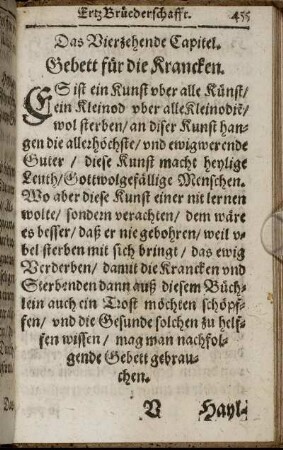 Ertz Brüederschafft. 455
Das Vierzehende Capitel.
Gebett für die Krancken.
ES ist ein Kunst vber alle Künst/
ein Kleinod vber alle Kleinodiẽ/
wol sterben/ an diser Kunst han-
gen die allerhöchste/ vnd ewigwerende
Guter / diese Kunst macht heylige
Leuth/ Gottwolgefällige Menschen.
Wo aber diese Kunst einer nit lernen
wolte/ sondern verachten/ dem wäre
es besser/ daß er nie gebohren/ weil v-
bel sterben mit sich bringt/ das ewig
Verderben/ damit die Krancken vnd
Sterbenden dann auß diesem Büch-
lein auch ein Trost möchten schöpf-
fen/ vnd die Gesunde solchen zu helf-
fen wissen/ mag man nachfol-
gende Gebett gebrau-
chen.
V Hayl-